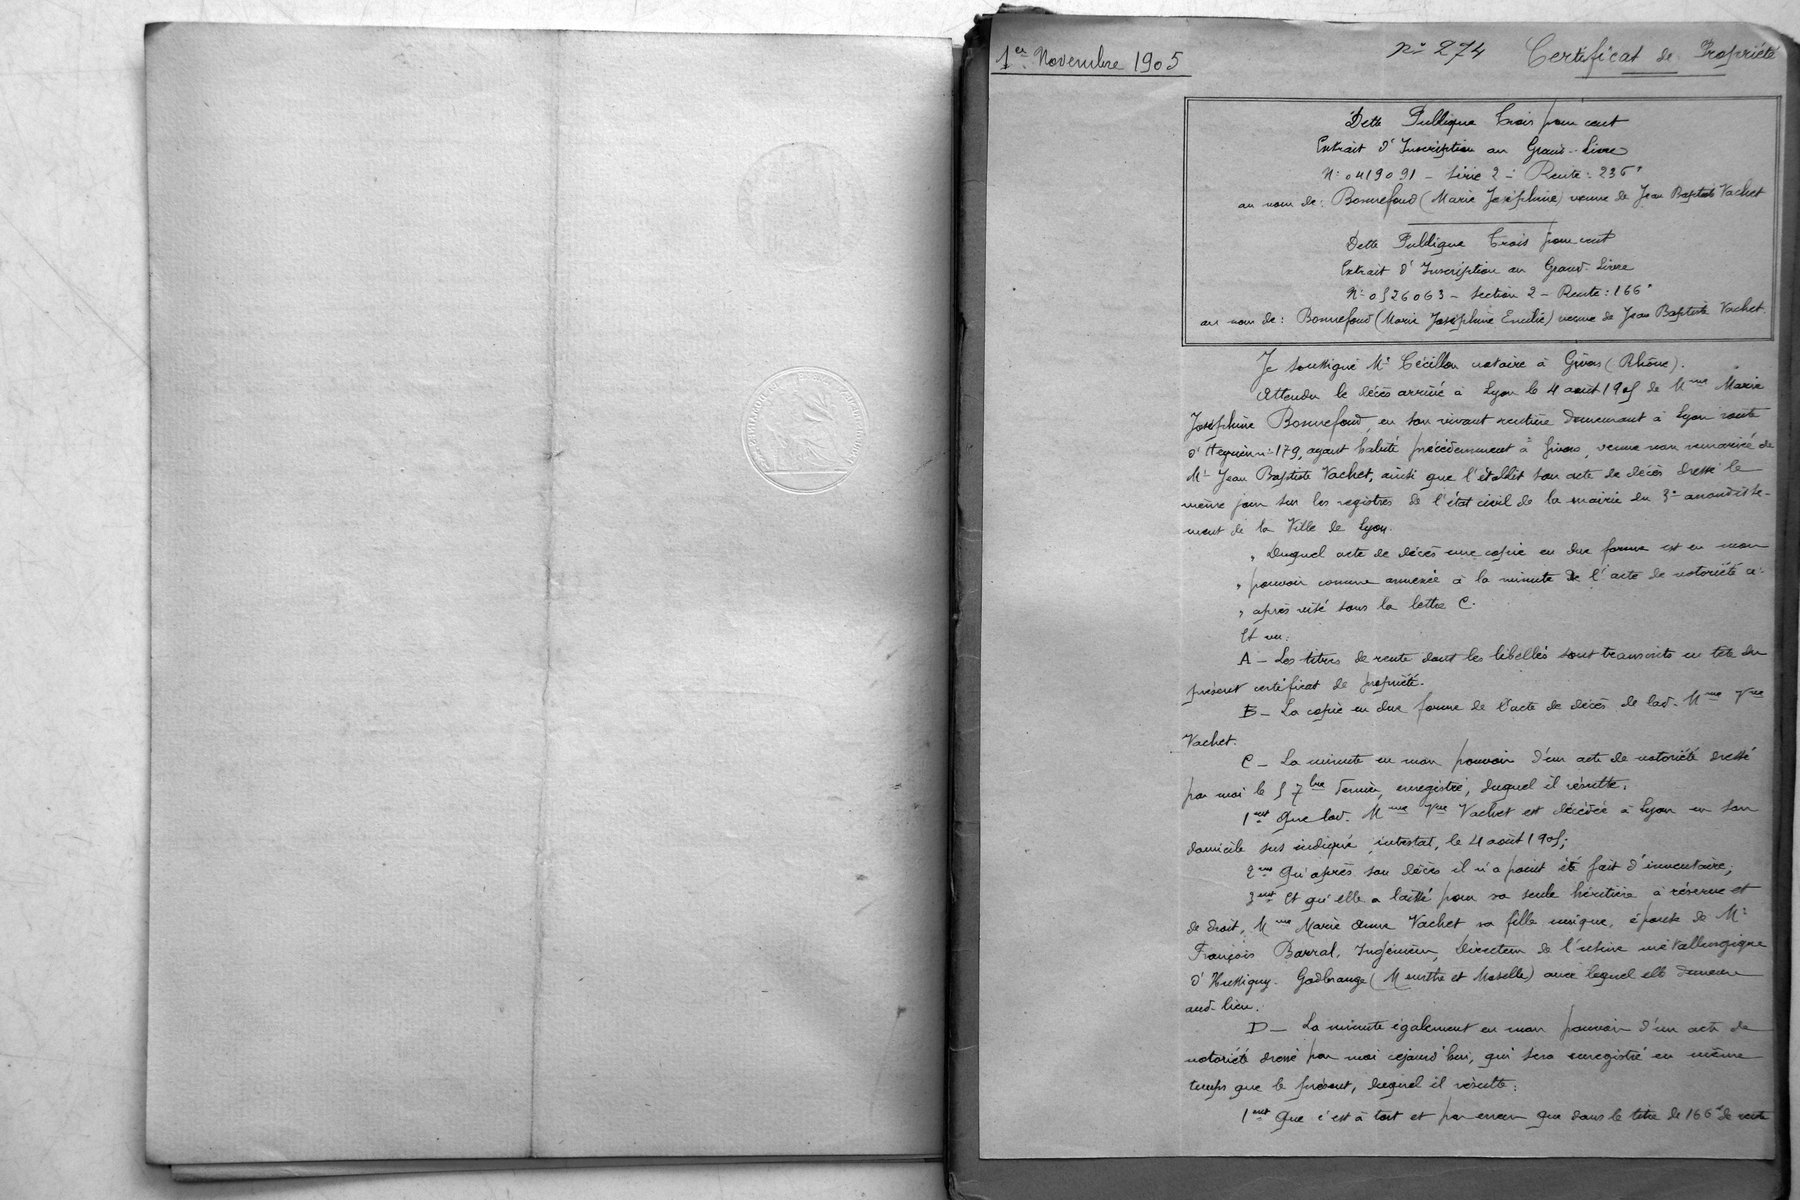 1er Novembre 1905
No 274 Certificat de Propriété
Dette Publique Trois pour cent
Extrait d'Inscription au Grand-Livre
No: 0419091 - Série 2 - Rente: 236f
au nom de: Bonnefond (Marie Joséphine) veuve de Jean Baptiste Vachet
Dette Publique Trois pour cent
Extrait d'Inscription au Grand-Livre
No: 0526063 - Section 2 - Rente: 166f
au nom de: Bonnefond (Marie Joséphine Emilie) veuve de Jean Baptiste Vachet.
Je soussigné Me Cécillon notaire à Givors (Rhône).
Attendu le décès arrivé à Lyon le 4 août 1905 de Mme Marie
Joséphine Bonnefond, en son vivant rentière demeurant à Lyon route
d'Heyrieu no: 179, ayant habité précédemment à Givors, veuve non remariée de
Mr Jean Baptiste Vachet, ainsi que l'établit son acte de décès dressé le
même jour sur les registres de l'état civil de la mairie du 3e arrondisse-
ment de la Ville de Lyon.
" Duquel acte de décès une copie en due forme est en mon
" pouvoir comme annexée à la minute de l'acte de notoriété ci-
" après visé sous la lettre C.
Et vu:
A - Les titres de rente dont les libellés sont transcrits en tête du
présent certificat de propriété.
B - La copie en due forme de l'acte de décès de lad. Mme Vve
Vachet.
C - La minute en mon pouvoir d'un acte de notoriété dressé
par moi le 5 7bre dernier, enregistré, duquel il résulte:
1ent Que lad. Mme Vve Vachet est décédée à Lyon en son
domicile sus indiqué, intestat, le 4 août 1905;
2ent Qu'après son décès il n'a point été fait d'inventaire;
3ent Et qu'elle a laissé pour sa seule héritière à réserve et
de droit, Mme Marie Anne Vachet sa fille unique, épouse de Mr
François Barral, Ingénieur, Directeur de l'usine métallurgique
d'Hussigny-Godbrange (Meurthe et Moselle) avec lequel elle demeure
aud. lieu.
D - La minute également en mon pouvoir d'un acte de
notoriété dressé par moi cejourd'hui, qui sera enregistré en même
temps que le présent, duquel il résulte:
1ent Que c'est à tort et par erreur que dans le titre de 166f de rente